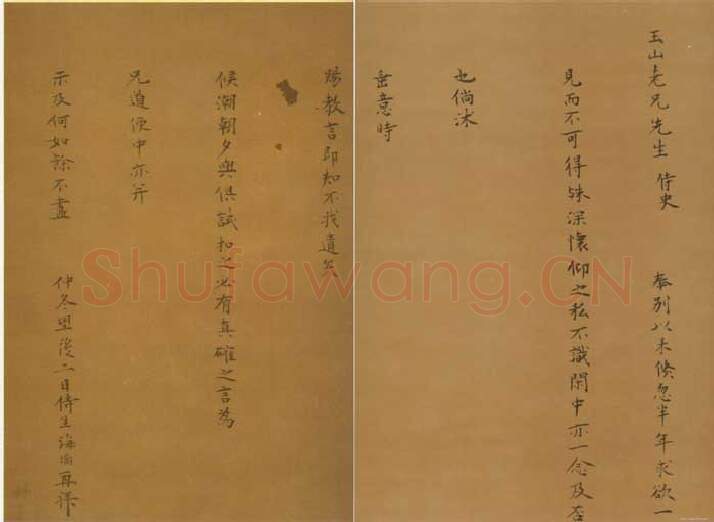 玉山老兄先生 侍史 奉別以来倏忽半年求欲一
見而不可得殊深懷仰之私不識閑中亦一念及否
也倘沐
垂意時
賜教言即知不我遺矣
候潮朝夕與俱試扣之必有真確之言為
兄道便中亦并
示及何如餘不盡
仲冬望後二日侍生海瑞再拜
Shufawang.CN